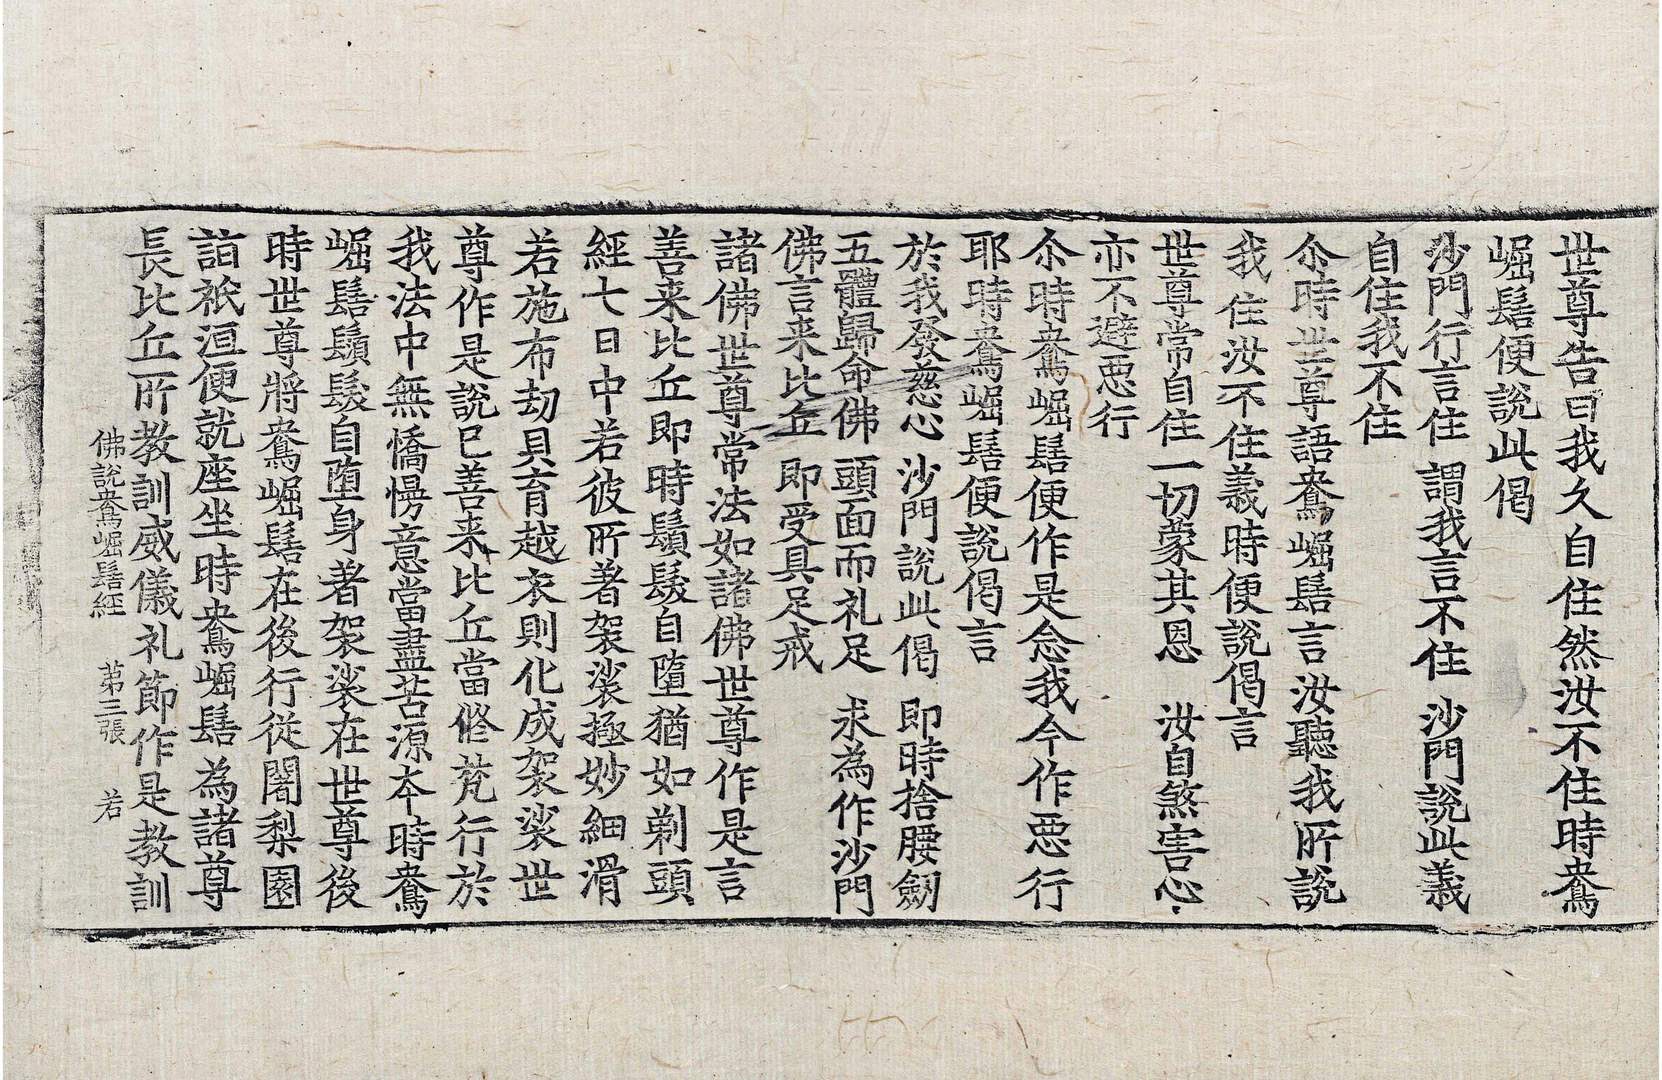 世尊告曰我久自住然汝不住時鴦
崛髻便說此偈
沙門行言住 謂我言不住 沙門說此義
自住我不住
尒時世尊語鴦崛髻言汝聽我所說
我住汝不住義時便說偈言
世尊常自住一切蒙其恩 汝自煞害心
亦不避悪行
尒時鴦崛髻便作是念我今作悪行
耶時鴦崛髻便說偈言
於我發慈心 沙門說此偈 即時捨腰劒
五體歸命佛 頭面而礼足 求為作沙門
佛言来比丘 即受具足戒
諸佛世尊常法如諸佛世尊作是言
善来比丘即時鬚髮自墮猶如剃頭
經七日中若彼所著袈裟極妙細滑
若施布劫具育越衣則化成袈裟世
尊作是說已善来比丘當俢梵行於
我法中無憍慢意當盡苦源夲時鴦
崛髻鬚髮自墮身著袈裟在世尊後
時世尊將鴦崛髻在後行從闍梨園
詣祇洹便就座坐時鴦崛髻為諸尊
長比丘所教訓威儀礼節作是教訓
佛說鴦崛髻經 苐三張 若